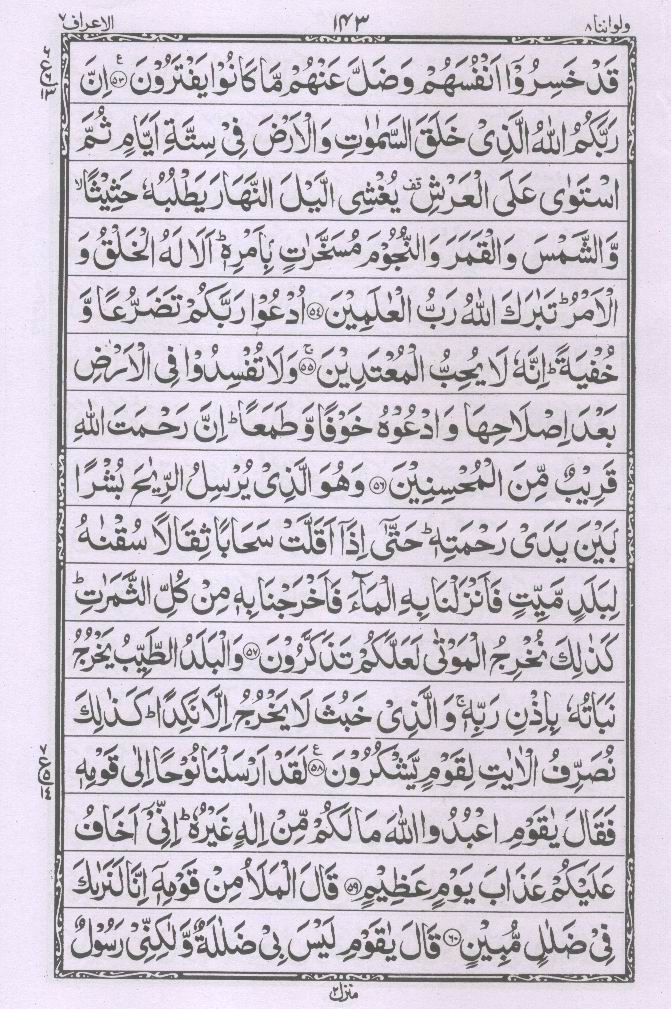 ولواننا ٨ ١٤٣ الاعراف ٧
قَدْ خَسِرُوْۤا اَنْفُسَهُمْ وَضَلَّ عَنْهُمْ مَّا كَانُوْا يَفْتَرُوْنَ ﴿۵۳﴾ اِنَّ
رَبَّكُمُ اللّٰهُ الَّذِىْ خَلَقَ السَّمٰوٰتِ وَالْاَرْضَ فِىْ سِتَّةِ اَيَّامٍ ثُمَّ
اسْتَوٰى عَلَى الْعَرْشِ قف يُغْشِى الَّيْلَ النَّهَارَ يَطْلُبُهٗ حَثِيْثًا ۙ
وَّالشَّمْسَ وَالْقَمَرَ وَالنُّجُوْمَ مُسَخَّرٰتٍۭ بِاَمْرِهٖ ؕ اَلَا لَهُ الْخَلْقُ وَ
الْاَمْرُ ؕ تَبٰرَكَ اللّٰهُ رَبُّ الْعٰلَمِيْنَ ﴿۵۴﴾ اُدْعُوْا رَبَّكُمْ تَضَرُّعًا وَّ
خُفْيَةً ؕ اِنَّهٗ لَا يُحِبُّ الْمُعْتَدِيْنَ ۚ ﴿۵۵﴾ وَلَا تُفْسِدُوْا فِى الْاَرْضِ
بَعْدَ اِصْلَاحِهَا وَادْعُوْهُ خَوْفًا وَّطَمَعًا ؕ اِنَّ رَحْمَتَ اللّٰهِ
قَرِيْبٌ مِّنَ الْمُحْسِنِيْنَ ﴿۵۶﴾ وَهُوَ الَّذِىْ يُرْسِلُ الرِّيٰحَ بُشْرًا
بَيْنَ يَدَىْ رَحْمَتِهٖ ؕ حَتّٰۤى اِذَاۤ اَقَلَّتْ سَحَابًا ثِقَالًا سُقْنٰهُ
لِبَلَدٍ مَّيِّتٍ فَاَنْزَلْنَا بِهِ الْمَآءَ فَاَخْرَجْنَا بِهٖ مِنْ كُلِّ الثَّمَرٰتِ ؕ
كَذٰلِكَ نُخْرِجُ الْمَوْتٰى لَعَلَّكُمْ تَذَكَّرُوْنَ ﴿۵۷﴾ وَالْبَلَدُ الطَّيِّبُ يَخْرُجُ
نَبَاتُهٗ بِاِذْنِ رَبِّهٖ ۚ وَالَّذِىْ خَبُثَ لَا يَخْرُجُ اِلَّا نَكِدًا ؕ كَذٰلِكَ
نُصَرِّفُ الْاٰيٰتِ لِقَوْمٍ يَّشْكُرُوْنَ ﴿۵۸﴾ لَقَدْ اَرْسَلْنَا نُوْحًا اِلٰى قَوْمِهٖ
فَقَالَ يٰقَوْمِ اعْبُدُوا اللّٰهَ مَا لَكُمْ مِّنْ اِلٰهٍ غَيْرُهٗ ؕ اِنِّىْۤ اَخَافُ
عَلَيْكُمْ عَذَابَ يَوْمٍ عَظِيْمٍ ﴿۵۹﴾ قَالَ الْمَلَاُ مِنْ قَوْمِهٖۤ اِنَّا لَنَرٰىكَ
فِىْ ضَلٰلٍ مُّبِيْنٍ ﴿۶۰﴾ قَالَ يٰقَوْمِ لَيْسَ بِىْ ضَلٰلَةٌ وَّلٰكِنِّىْ رَسُوْلٌ
منزل ٢